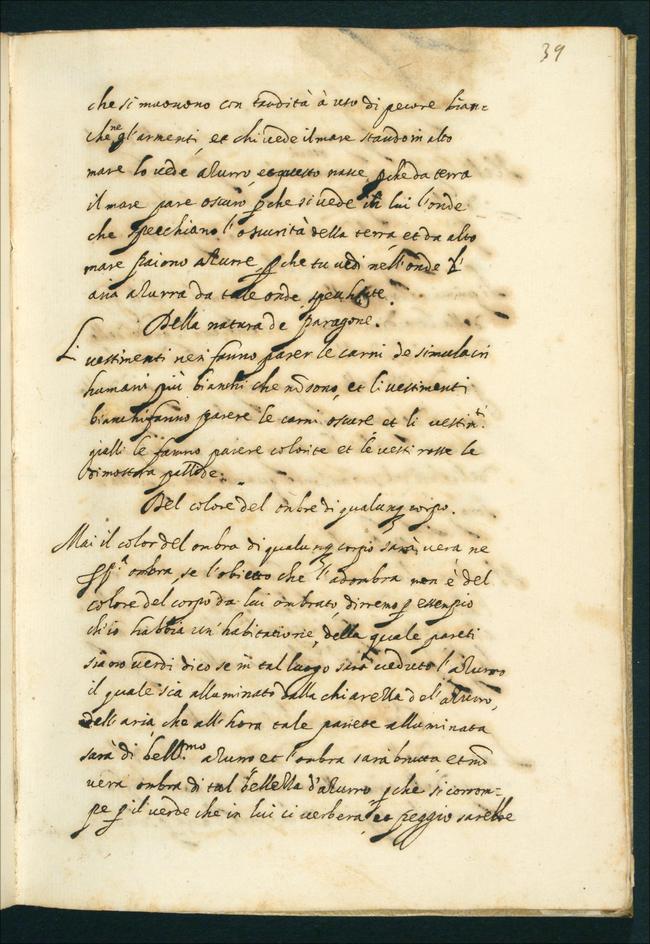 39
che si muouono con tardità à uso di pecore bian=
che ne gl'armenti, et chi uede il mare stando in alto
mare lo uede azurro, et questo nasce, pche da terra
il mare pare oscuro pche si uede in lui l'onde
che specchiano l'oscurità della terra, et da alto
mare paiono azurre, pche tu uedi nell'onde l'
aria azurra da tale onde specchiate.
Della natura de paragone.
Li uestimenti neri fanno parer le carni de simulacri
humani più bianchi che nõ sono, et li uestimenti
bianchi fanno parere le carni oscure et li uestimti.
gialli le fanno parere colorite et le uesti rosse le
dimostra pallide.
Del colore del onbre di qualunq corpo.
Mai il color del ombra di qualunq corpo sarà uera ne
ppa ombra, se l'obietto che l'adombra non è del
colore del corpo da lui ombrato, diremo p essempio
ch'io habbia un'habitatione, della quale pareti
siano uerdi dico se in tal luogo sarà ueduto l'azurro
il quale sia alluminato dalla chiarezza del'azurro,
dell'aria, che all'hora tale pariete alluminata
sarà di bellmo azurro et l'ombra sarà brutta et nõ
uera ombra di tal bellezza d'azurro pche si corrom=
pe p il uerde che in lui ci uerbera, et peggio sarebbe